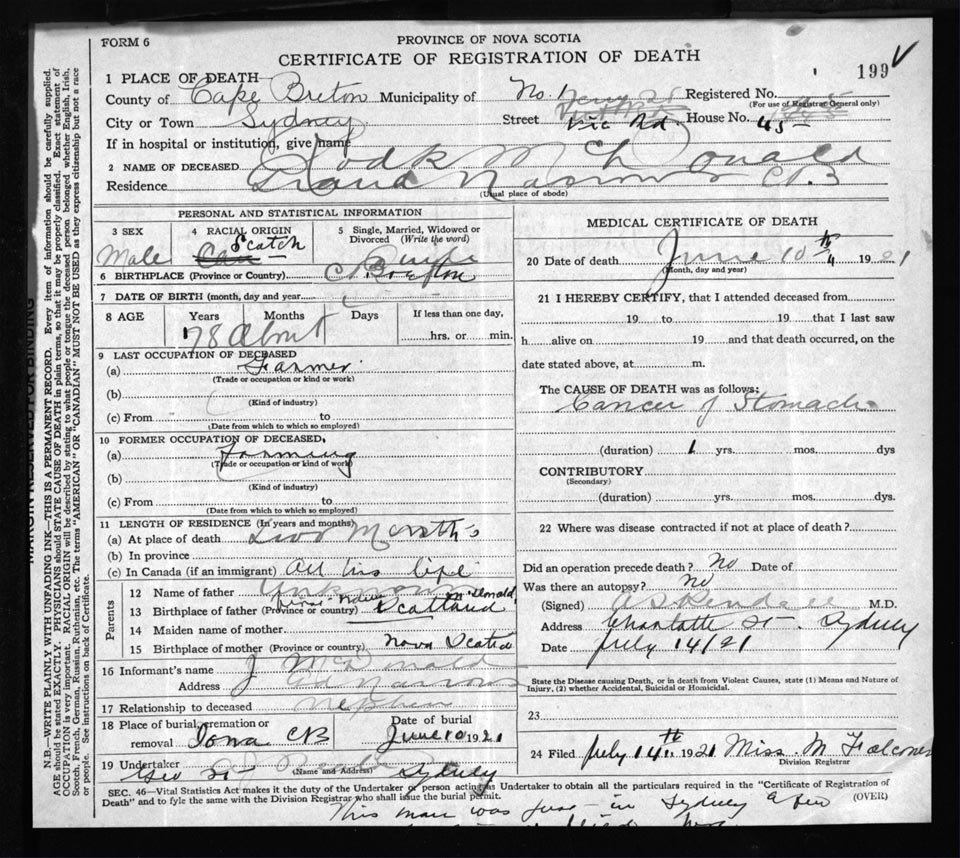 FORM 6
PROVINCE OF NOVA SCOTIA
CERTIFICATE OF REGISTRATION OF DEATH
199
1 PLACE OF DEATH
County of Cape Breton Municipality of No. 1 Registered No.
(For use of Registrar General only)
City or Town Sydney Street Vic Rd. House No. 45
If in hospital or institution, give name
2 NAME OF DECEASED Rodk McDonald
Residence Grand Narrows C.B
(Usual place of abode)
PERSONAL AND STATISTICAL INFORMATION
3 SEX Male
4 RACIAL ORIGIN Scotch
5 Single, Married, Widowed or Divorced (Write the word)
6 BIRTHPLACE (Province or Country) C. Breton
7 DATE OF BIRTH (month, day and year)
8 AGE Years Months Days If less than one day,
78 about hrs. or min.
9 LAST OCCUPATION OF DECEASED
(a) Farmer
(Trade or occupation or kind or work)
(b)
(Kind of industry)
(c) From to
(Date from which to which so employed)
10 FORMER OCCUPATION OF DECEASED.
(a) Farming
(Trade or occupation or kind of work)
(b)
(Kind of industry)
(c) From to
(Date from which to which so employed)
11 LENGTH OF RESIDENCE (In years and months)
(a) At place of death Two Months
(b) In province
(c) In Canada (if an immigrant) All his life
Parents
12 Name of father McDonald
13 Birthplace of father (Province or country) Scotland
14 Maiden name of mother
15 Birthplace of mother (Province or country) Nova Scotia
16 Informant's name J McDonald
Address Gd Narrows
17 Relationship to deceased Nephew
18 Place of burial, cremation or removal Iona CB
Date of burial June 10 1921
19 Undertaker
(Name and Address)
Geo St Sydney
MEDICAL CERTIFICATE OF DEATH
20 Date of death June 10th 1921
(Month, day and year)
21 I HEREBY CERTIFY, that I attended deceased from
19 to 19 that I last saw
h alive on 19 and that death occurred, on the
date stated above, at m.
The CAUSE OF DEATH was as follows:
Cancer of Stomach
(duration) 1 yrs. mos. dys
CONTRIBUTORY
(Secondary)
(duration) yrs. mos. dys.
22 Where was disease contracted if not at place of death?
Did an operation precede death? No Date of
Was there an autopsy? No
(Signed) A S Kendall M.D.
Address Charlotte St. Sydney
Date July 14/21
State the Disease causing Death, or in death from Violent Causes, state (1) Means and Nature of
Injury, (2) whether Accidental, Suicidal or Homicidal.
23
24 Filed July 14th 1921 Miss M Falconer
Division Registrar
SEC. 46—Vital Statistics Act makes it the duty of the Undertaker or person acting as Undertaker to obtain all the particulars required in the "Certificate of Registration of
Death" and to fyle the same with the Division Registrar who shall issue the burial permit.
(OVER)
This man was just in Sydney a few
MARGIN RESERVED FOR BINDING
N.B.—WRITE PLAINLY WITH UNFADING INK—THIS IS A PERMANENT RECORD. Every item of information should be carefully supplied.
AGE should be stated EXACTLY. PHYSICIANS should STATE CAUSE OF DEATH in plain terms, so that it may be properly classified. Exact statement of
OCCUPATION is very important. RACIAL ORIGIN will be described by stating to what people or tongue the deceased person belonged whether English, Irish,
Scotch, French, German, Russian, Ruthenian, etc. The terms "AMERICAN" OR "CANADIAN" MUST NOT BE USED as they express citizenship but not a race
or people. See instructions on back of Certificate.